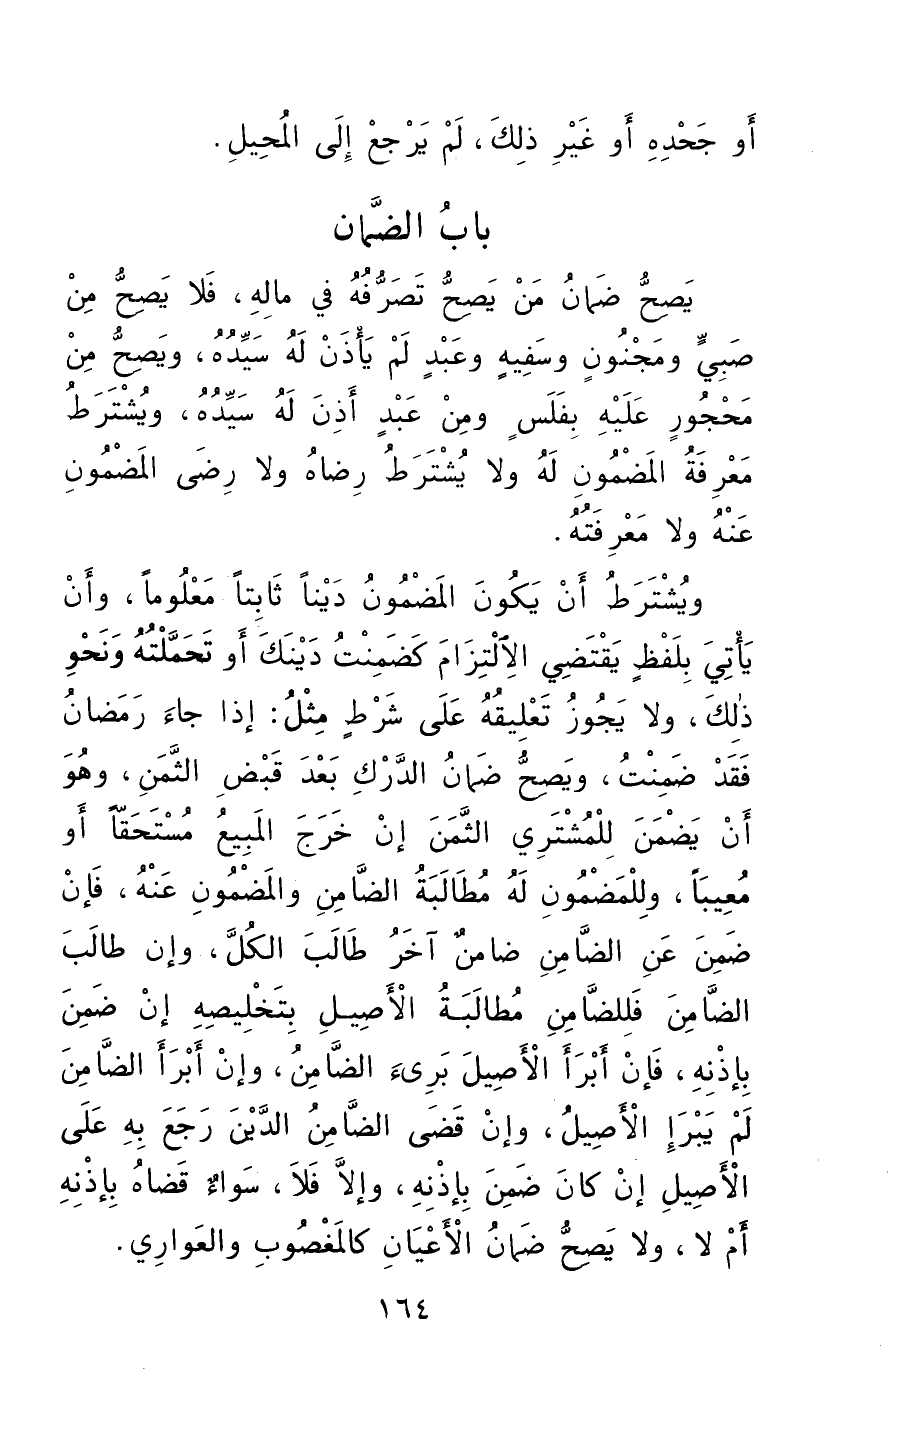 أَو جَحْدِهِ أَو غَيْرِ ذلِكَ، لَمْ يَرْجِعْ إِلَى الْمُحِيلِ.
بابُ الضَّمان
يَصِحُّ ضَمانُ مَنْ يَصِحُّ تَصَرُّفُهُ في مالِهِ، فَلا يَصِحُّ مِنْ
صَبِيٍّ ومَجْنُونٍ وسَفِيهٍ وعَبْدٍ لَمْ يَأْذَنْ لَهُ سَيِّدُهُ، ويَصِحُّ مِنْ
مَحْجُورٍ عَلَيْهِ بِفَلَسٍ ومِنْ عَبْدٍ أَذِنَ لَهُ سَيِّدُهُ، ويُشْتَرَطُ
مَعْرِفَةُ المَضْمُونِ لَهُ ولا يُشْتَرَطُ رِضاهُ ولا رِضَى المَضْمُونِ
عَنْهُ ولا مَعْرِفَتُهُ.
ويُشْتَرَطُ أَنْ يَكُونَ المَضْمُونُ دَيْناً ثَابِتاً مَعْلُوماً، وأَنْ
يَأْتِيَ بِلَفْظٍ يَقْتَضِي الِالْتِزَامَ كَضَمِنْتُ دَيْنَكَ أَو تَحَمَّلْتُهُ وَنَحْوِ
ذٰلِكَ، ولا يَجُوزُ تَعْلِيقُهُ عَلَى شَرْطٍ مِثْلُ: إذا جاءَ رَمَضانُ
فَقَدْ ضَمِنْتُ، ويَصِحُّ ضَمانُ الدَّرْكِ بَعْدَ قَبْضِ الثَّمَنِ، وهُوَ
أَنْ يَضْمَنَ لِلْمُشْتَرِي الثَّمَنَ إنْ خَرَجَ المَبِيعُ مُسْتَحَقّاً أَو
مُعِيبَاً، وللْمَضْمُونِ لَهُ مُطَالَبَةُ الضَّامِنِ والمَضْمُونِ عَنْهُ، فَإنْ
ضَمِنَ عَنِ الضَّامِنِ ضامِنٌ آخَرُ طَالَبَ الكُلَّ، وإن طالَبَ
الضَّامِنَ فَلِلضَّامِنِ مُطالَبَةُ الْأَصِيلِ بِتَخْلِيصِهِ إنْ ضَمِنَ
بِإذْنِهِ، فَإنْ أَبْرَأَ الْأَصِيلَ بَرِىءَ الضَّامِنُ، وإنْ أَبْرَأَ الضَّامِنَ
لَمْ يَبْرَإِ الْأَصِيلُ، وإنْ قَضَى الضَّامِنُ الدَّيْنَ رَجَعَ بِهِ عَلَى
الْأَصِيلِ إنْ كانَ ضَمِنَ بِإذْنِهِ، وإلاَّ فَلاَ، سَواءٌ قَضاهُ بِإذْنِهِ
أَمْ لا، ولا يَصِحُّ ضَمانُ الْأَعْيَانِ كالمَغْصُوبِ والعَوارِي.
١٦٤